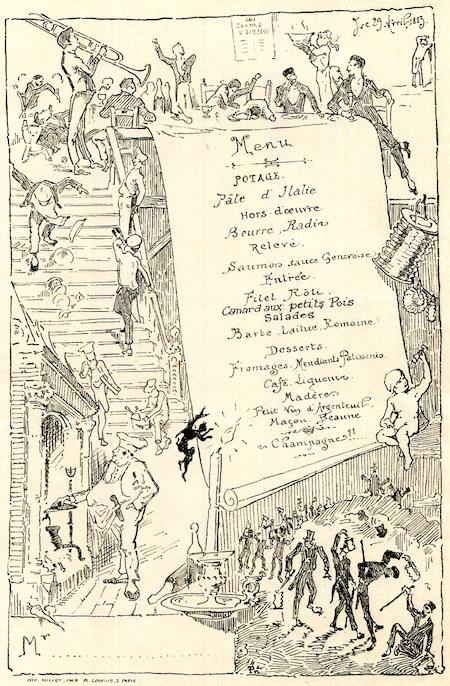 Menu
POTAGE.
Pâte d'Italie
Hors d'œuvre
Beurre, Radis
Relevé.
Saumon sauce Genevoise
Entrée.
Filet Rôti.
Canard aux petits Pois
Salades
Barbe, Laitue, Romaine
Desserts.
Fromages. Mendiants. Patisseries.
Café, Liqueurs
Madère
Petit Vin d'Argenteuil.
Maçon, Beaune
et Champagnes!!...
Mr